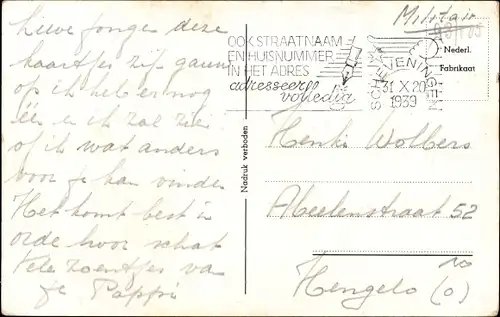 Lieve jongen deze
kaartjes zijn gauw
op ik heb er nog
één en ik zal zien
of ik wat anders
voor je kan vinden
Het komt best in
orde hoor schat
Vele zoentjes van
je Pappi
Nadruk verboden
OOK STRAATNAAM
EN HUISNUMMER
IN HET ADRES
adresseer
volledig
SCHEVENINGEN
31 X 20
1939
Militair
Nederl.
Fabrikaat
Henki Wolbers
Abeelenstraat 52
Hengelo (O)